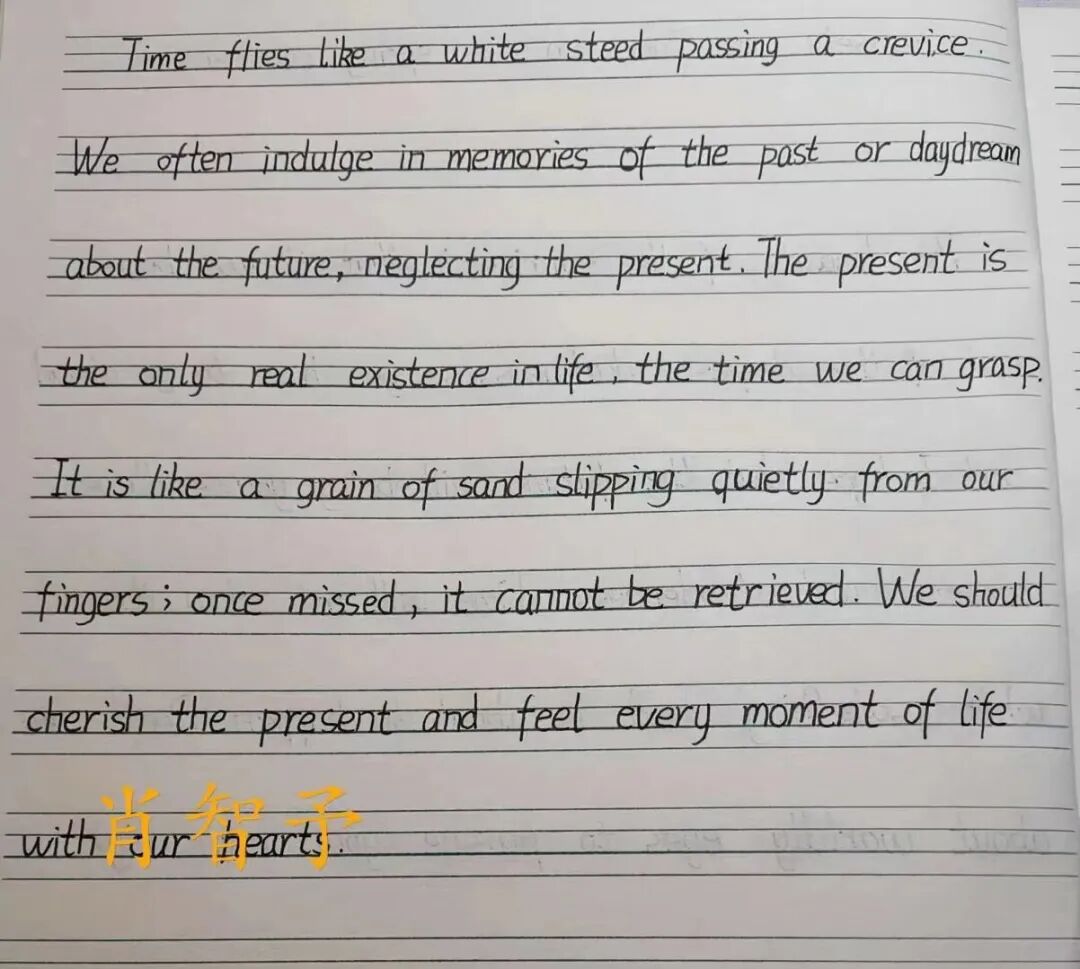 Time flies like a white steed passing a crevice.
We often indulge in memories of the past or daydream
about the future, neglecting the present. The present is
the only real existence in life, the time we can grasp.
It is like a grain of sand slipping quietly from our
fingers; once missed, it cannot be retrieved. We should
cherish the present and feel every moment of life
with our hearts.
肖智予